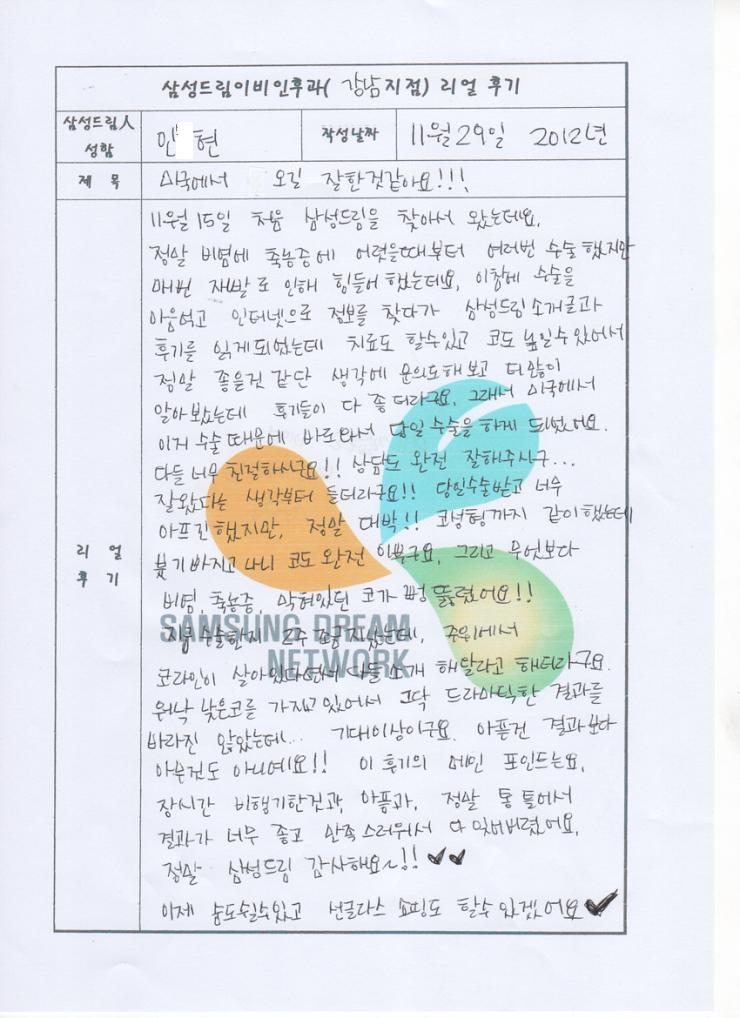 삼성드림이비인후과( 강남지점) 리얼 후기
삼성드림人 성함
민 현
작성날짜
11월29일 2012년
제 목
미국에서 오길 잘한것같아요!!!
리 얼 후 기
11월 15일 처음 삼성드림을 찾아서 왔는데요.
정말 비염에 축농증에 어렸을때부터 여러번 수술했지만
매번 재발로 인해 힘들어했는데요, 이참에 수술을
마음먹고 인터넷으로 정보를 찾다가 삼성드림소개글과
후기를 읽게되었는데 치료도 할수있고 코도 높일수있어서
정말 좋을것 같단 생각에 문의도해보고 더 많이
알아보았는데 후기들이 다 좋더라구요. 그래서 미국에서
이거 수술때문에 바로와서 당일수술을 하게 되었어요.
다들 너무 친절하시구요!! 상담도 완전 잘해주시구...
잘왔다는 생각부터 들더라구요!! 당일수술받고 너무
아프긴했지만, 정말 대박!! 코성형까지 같이했는데
붓기 빠지고나니 코도 완전 이쁘구요, 그리고 무엇보다
비염, 축농증, 막혀있던 코가 뻥 뚫렸어요!!
지금 수술한지 2주 조금지났는데, 주위에서
코라인이 살아있다면서 다들 소개 해달라고 해더라구요.
워낙 낮은코를 가지고있어서 그닥 드라마틱한 결과를
바라진 않았는데... 기대이상이구요. 아픈건 결과보다
아무것도 아니에요!! 이 후기의 메인 포인트는요,
장시간 비행기한것과, 아픔과, 정말 통틀어서
결과가 너무 좋고 만족스러워서 다 잊어버렸어요,
정말 삼성드림 감사해요~!! ✔✔
이제 숨도쉴수있고 선글라스 쇼핑도 할수있겠어요✔
SAMSUNG DREAM
NETWORK